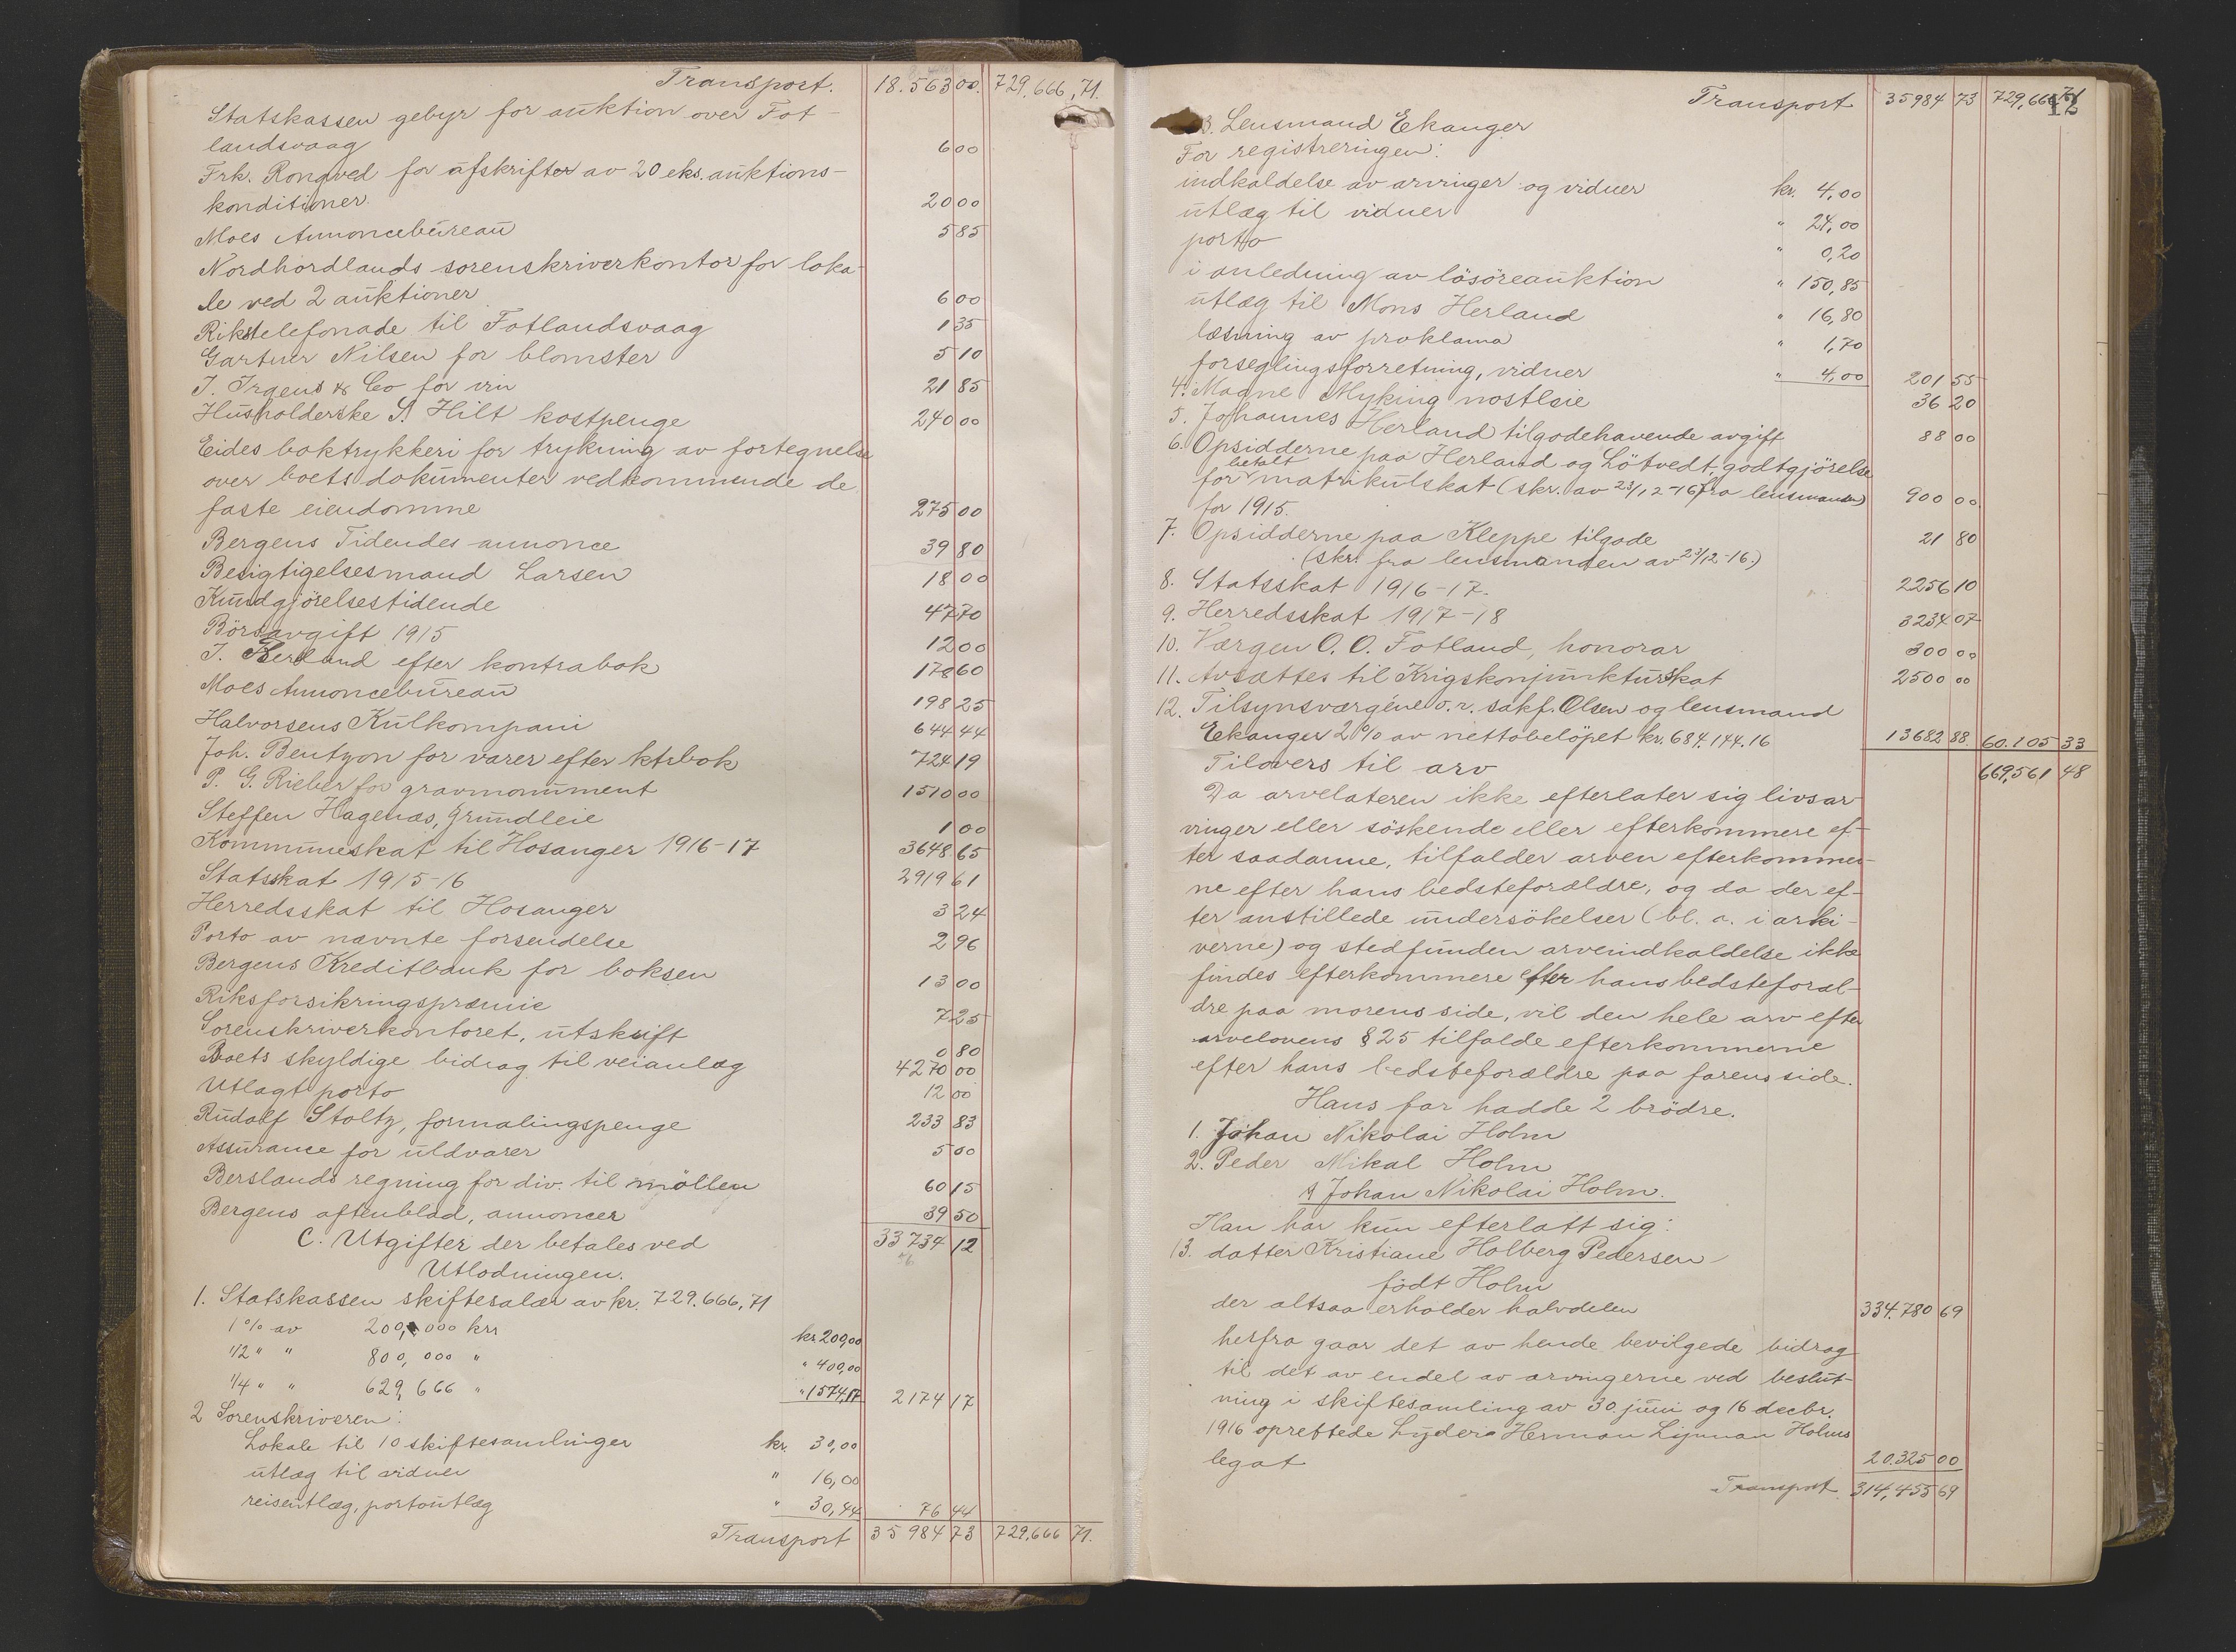 Transport. 18.563 00. 729.666,71.
Statskassen gebyr for auktion over Fot-
landsvaag 6 00
Frk. Rongved for afskrifter av 20 eks. auktions-
konditioner. 20 00
Moes Annoncebureau 5 85
Nordhordlands sorenskriverkontor for loka-
le ved 2 auktioner 6 00
Rikstelefonade til Fotlandsvaag 1 35
Gartner Nilsen for blomster 5 10
J. Irgens & Co for vin 21 85
Husholderske S. Hilt kostpenge 240 00
Eides boktrykkeri for trykning av fortegnelse
over boets dokumenter vedkommende de
faste eiendomme 275 00
Bergens Tidendes annonce 39 80
Besigtigelsesmand Larsen 18 00
Kundgjörelsestidende 47 70
Börsavgift 1915 12 00
J. Berland efter kontrabok 178 60
Moes Annoncebureau 198 25
Halvorsens Kulkompani 644 44
Joh. Bentzon for varer efter ktrbok 724 19
P. G. Rieber for gravmonument 1510 00
Steffen Hagenæs, grundleie 1 00
Kommuneskat til Hosanger 1916-17 3648 65
Statsskat 1915-16 2919 61
Herredsskat til Hosanger 3 24
Porto av nævnte forsendelse 2 96
Bergens Kreditbank for boksen 13 00
Riksforsikringspræmie 7 25
Sorenskriverkontoret, utskrift 0 80
Boets skyldige bidrag til veianlæg 4270 00
Utlagt porto 12 00
Rudolf Stoltz, formalingspenge 233 83
Assurance for uldvarer 5 00
Berslands regning for div. til möllen 60 15
Bergens aftenblad, annoncer 39 50
C. Utgifter der betales ved 33 734 12
Utlodningen.
1. Statskassen skiftesalær av kr. 729.666,71
1 % av 200,000 krr kr. 200,00
1/2 " " 800,000 " " 400,00
1/4 " " 629,666 " " 1574,17 2174 17
2 Sorenskriveren:
Lokale til 10 skiftesamlinger kr. 30,00
utlæg til vidner " 16,00
reiseutlæg, portoutlæg " 30,44 76 44
Transport 35 984 73 729,666 71.
12
Transport 35984 73 729,666 71
3. Lensmand Ekanger
For registreringen:
indkaldelse av arvinger og vidner kr. 4,00
utlæg til vidner " 24,00
porto " 0,20
i anledning av lösöreauktion " 150,85
utlæg til Mons Herland " 16,80
læsning av proklama " 1,70
forseglingsforretning, vidner " 4,00 201 55
4. Magne Myking nostleie 36 20
5. Johannes Herland tilgodehavende avgift 88 00
6. Opsidderne paa Herland og Lötvedt, godtgjörelse
for betalt matrikulskat (skr. av 23/12-16 fra lensmanden) 900 00
for 1915.
7. Opsidderne paa Kleppe tilgode 21 80
(skr. fra lensmanden av 23/12-16.)
8. Statsskat 1916-17. 2256 10
9. Herredsskat 1917-18 3234 07
10. Værgen O. O. Fotland, honorar 300 00
11. Avsættes til Krigskonjunkturskat 2500 00
12. Tilsynsværgene o.r. sakf. Olsen og lensmand
Ekanger 2 % av nettobelöpet kr. 684.144.16 13682 88. 60.105 33
Tilovers til arv 669,561 48
Da arvelateren ikke efterlater sig livsar-
vinger eller söskende eller efterkommere ef-
ter saadanne, tilfalder arven efterkommer-
ne efter hans bedsteforældre, og da der ef-
ter anstillede undersökelser (bl. a. i arki-
verne) og stedfunden arveindkaldelse ikke
findes efterkommere efter hans bedsteforæl-
dre paa morens side, vil den hele arv efter
arvelovens § 25 tilfalde efterkommerne
efter hans bedsteforældre paa farens side.
Hans far hadde 2 brödre.
1. Johan Nikolai Holm
2. Peder Mikal Holm
Johan Nikolai Holm.
Han har kun efterlatt sig:
13. datter Kristiane Holberg Pedersen
födt Holm
der altsaa erholder halvdelen 334.780 69
herfra gaar det av hende bevilgede bidrag
til det av endel av arvingerne ved beslut-
ning i skiftesamling av 30. juni og 16 decbr.
1916 oprettede Lyder Herman Lyman Holms
legat 20.325 00
Transport 314,455 69